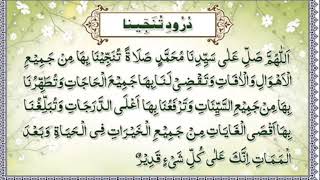 دُرُودِ تُنَجِّينَا
اَللّٰهُمَّ صَلِّ عَلٰى سَيِّدِنَا مُحَمَّدٍ صَلَاةً تُنَجِّيْنَا بِهَا مِنْ جَمِيْعِ
الْاَهْوَالِ وَالْاٰفَاتِ وَتَقْضِيْ لَنَا بِهَا جَمِيْعَ الْحَاجَاتِ وَتُطَهِّرُنَا
بِهَا مِنْ جَمِيْعِ السَّيِّئَاتِ وَتَرْفَعُنَا بِهَا اَعْلَى الدَّرَجَاتِ وَتُبَلِّغُنَا
بِهَا اَقْصَى الْغَايَاتِ مِنْ جَمِيْعِ الْخَيْرَاتِ فِى الْحَيَاةِ وَبَعْدَ
الْمَمَاتِ اِنَّكَ عَلٰى كُلِّ شَيْءٍ قَدِيْرٌ